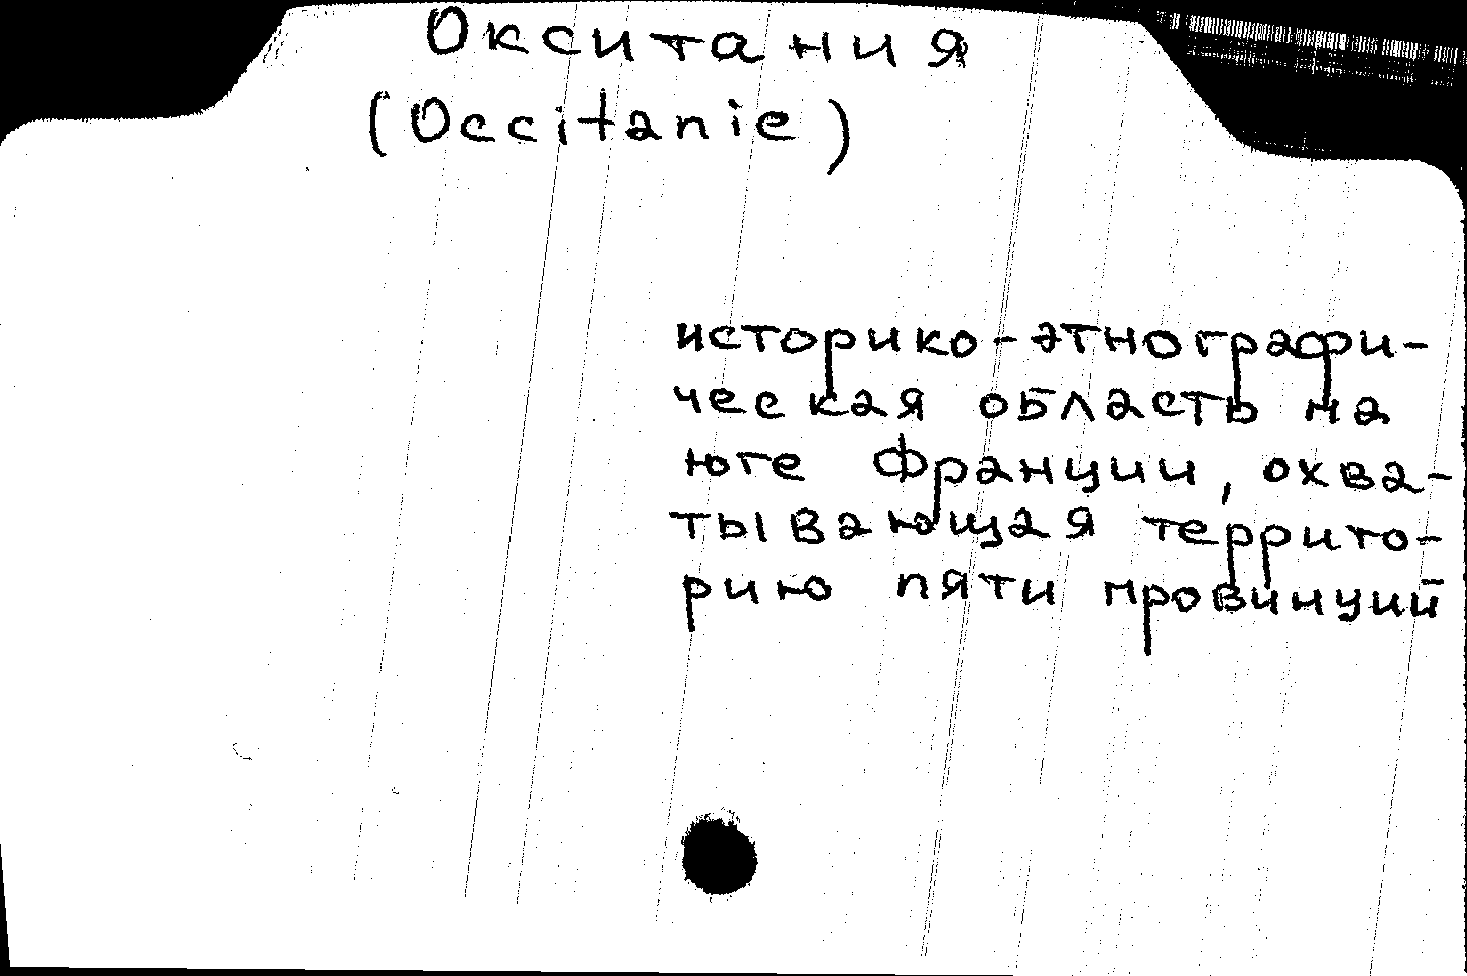 Окситания
(Occitanie)
историко-этнографи-
ческая область на
юге Франции, охва-
тывающая террито-
рию пяти провинций